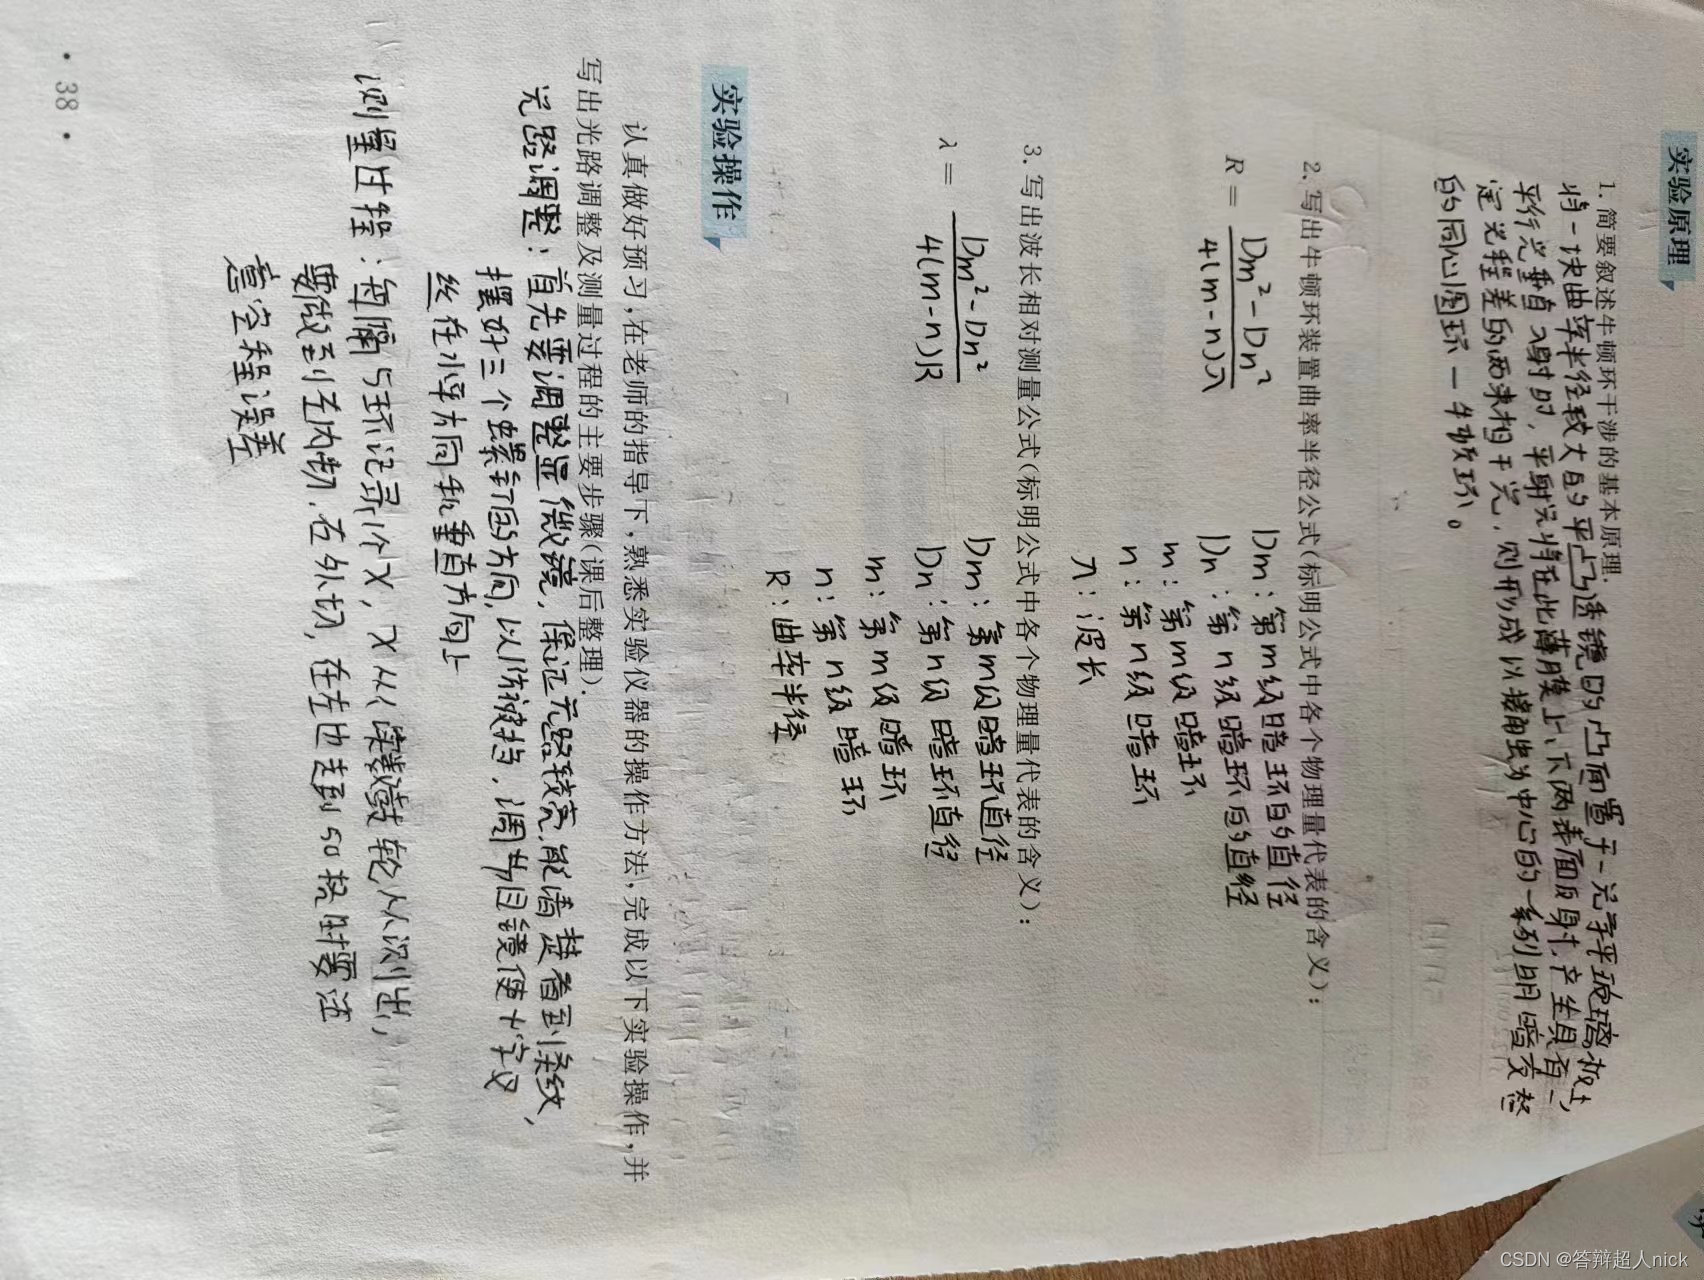 实验原理
1. 简要叙述牛顿环干涉的基本原理.
将一块曲率半径较大的平凸透镜的凸面置于一光学平玻璃板上,
平行光垂直入射时,平射光将在此薄膜上、下两表面反射,产生具有一
定光程差的两束相干光,则形成以接触点为中心的一系列明暗交替
的同心圆环—牛顿环。
2. 写出牛顿环装置曲率半径公式(标明公式中各个物理量代表的含义):
R = (Dm² - Dn²) / 4(m-n)λ
Dm:第m级暗环的直径
Dn:第n级暗环的直径
m:第m级暗环
n:第n级暗环
λ:波长
3. 写出波长相对测量公式(标明公式中各个物理量代表的含义):
λ = (Dm² - Dn²) / 4(m-n)R
Dm:第m级暗环直径
Dn:第n级暗环直径
m:第m级暗环
n:第n级暗环
R:曲率半径
实验操作
认真做好预习,在老师的指导下,熟悉实验仪器的操作方法,完成以下实验操作,并
写出光路调整及测量过程的主要步骤(课后整理).
光路调整:首先要调整显微镜,保证光路较亮,能清楚看到条纹,
摆好三个螺钉的方向,以防被挡,调节目镜使十字叉
丝在水平方向和垂直方向上
测量过程:每隔5环记录个X,X从读数鼓轮从测出,
要做到左内切,右外切,在左边走到50环时要注
意空程误差
· 38 ·
CSDN @答辩超人nick